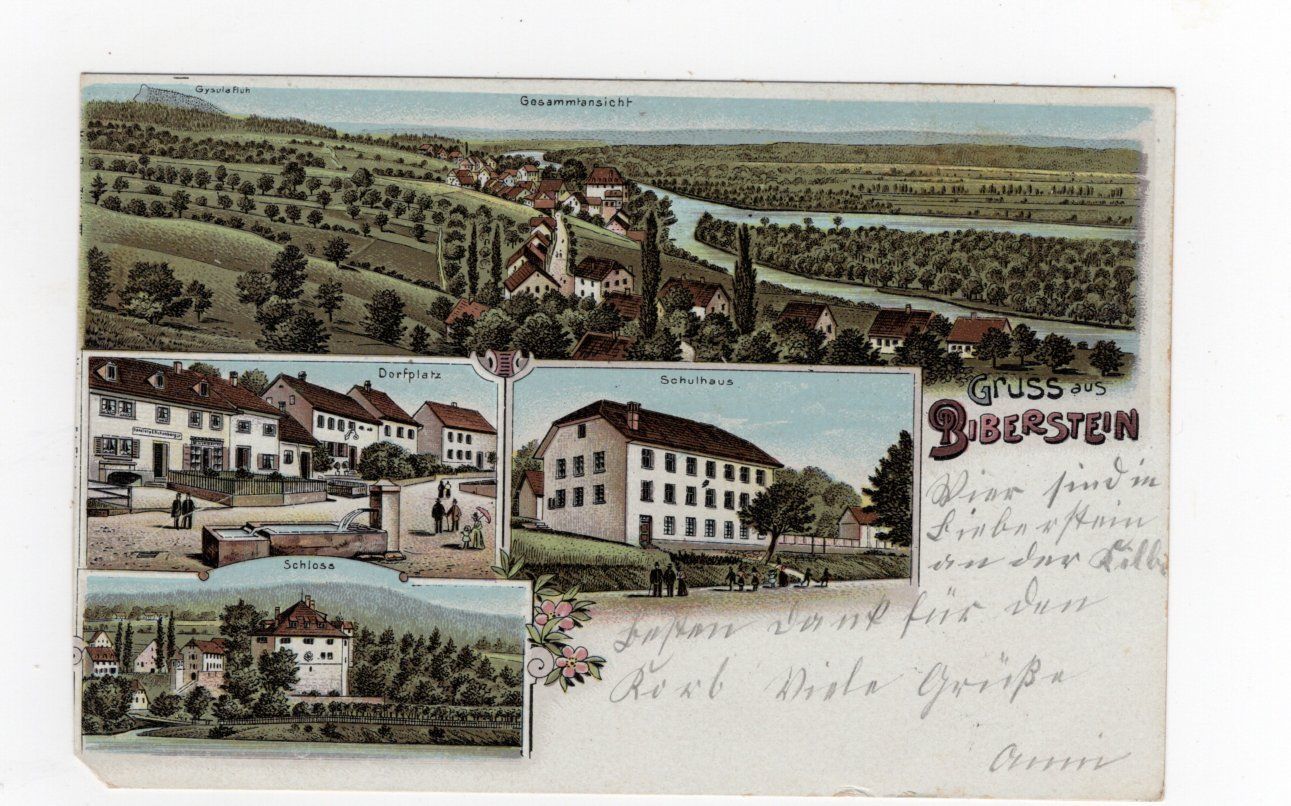 Gysulafluh
Gesammtansicht
Dorfplatz
Schulhaus
Schloss
Gruss aus
BIBERSTEIN
Wier sind in
Bieberstein
an der
besten Dank für den
Korb Viele Grüße